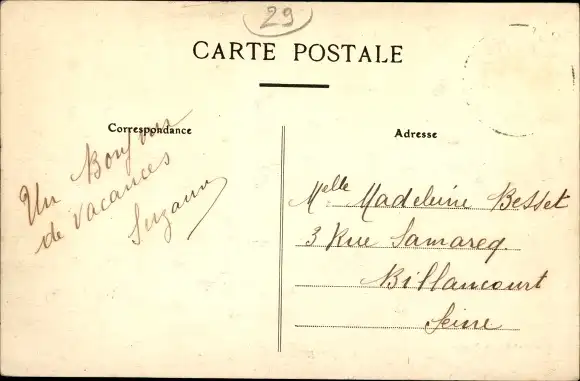 29
CARTE POSTALE
Correspondance
Adresse
Un Bonjour
de vacances
Suzanne
Melle Madeleine Besset
3 Rue Samareq.
Billancourt
Seine